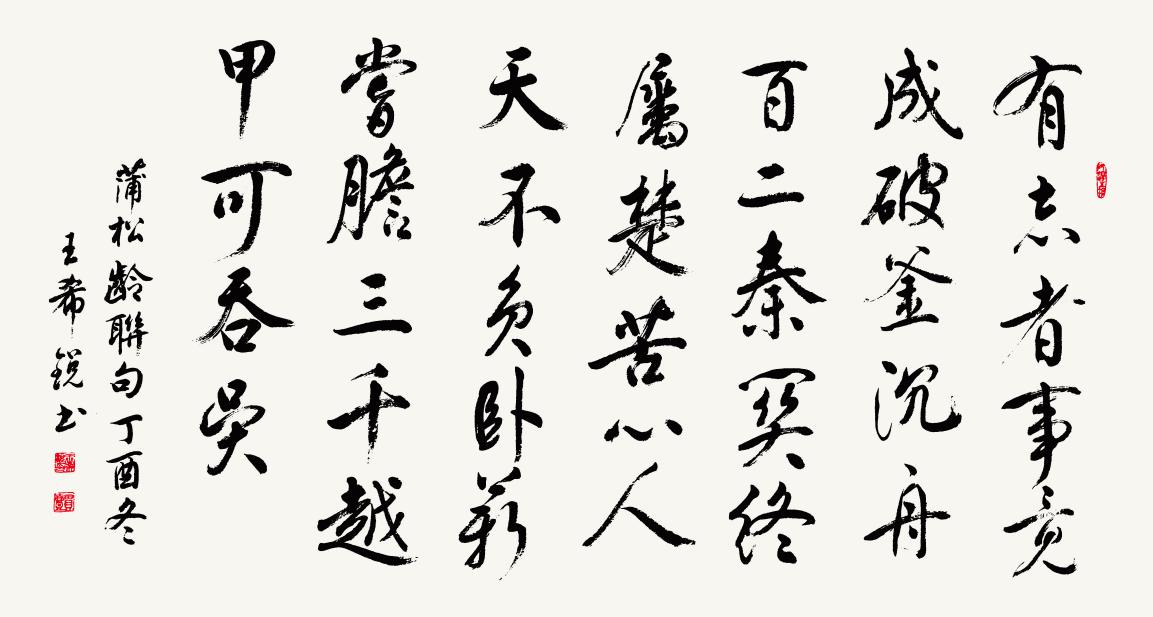 有志者事竟
成破釜沉舟
百二秦关终
屬楚苦心人
天不負卧薪
嘗膽三千越
甲可吞吴
蒲松齡聯句丁酉冬
王希銳书